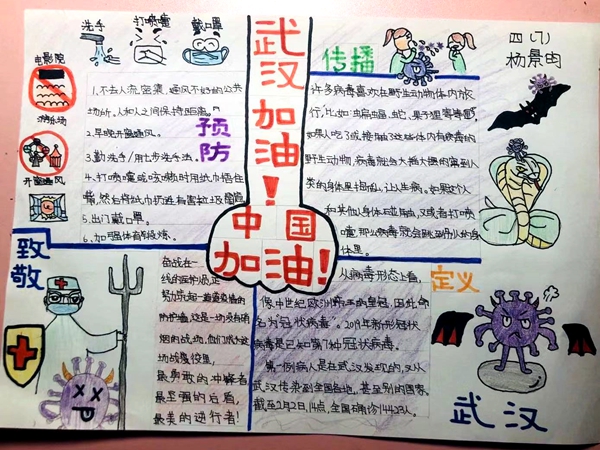 洗手
打喷嚏
戴口罩
电影院
游乐场
开窗通风
武汉加油！
中国加油！
传播
四(7)
杨景由
预防
1.不去人流密集、通风不好的公共
场所。人和人之间保持距离。
2.早晚开窗通风。
3.勤洗手/用七步洗手法。
4.打喷嚏或咳嗽时用纸巾捂住
嘴，然后将纸巾扔进有害垃圾
5.出门戴口罩。
6.加强体育锻炼。
许多病毒喜欢在野生动物体内旅
行，比如：蝙蝠、蛇、果子狸等等，
如果人吃了或接触了这些体内有病毒的
野生动物，病毒就会大摇大摆的
类的身体里捣乱，让人生病。如果这个人
和其他人身体碰触，又或者打喷
嚏，那么病毒就会跳到别人的身
体里。
致敬
奋战在一
线的医护人员正
努力筑起一道道
防护墙，这是一场没有硝
烟的战场，他们成为这
场战疫役里，
最勇敢的冲锋者，
最坚强的后盾，
最美的逆行者！
定义
从病毒形态上看，
像中世纪欧洲 的皇冠，因此命
名为“冠状病毒”。2019年新形冠状
病毒是已知第7种冠状病毒。
第一例病人是在武汉发现的，又从
武汉传染到全国各地，甚至别的国家，
截至2月2日，14点，全国确诊14423人。
武汉